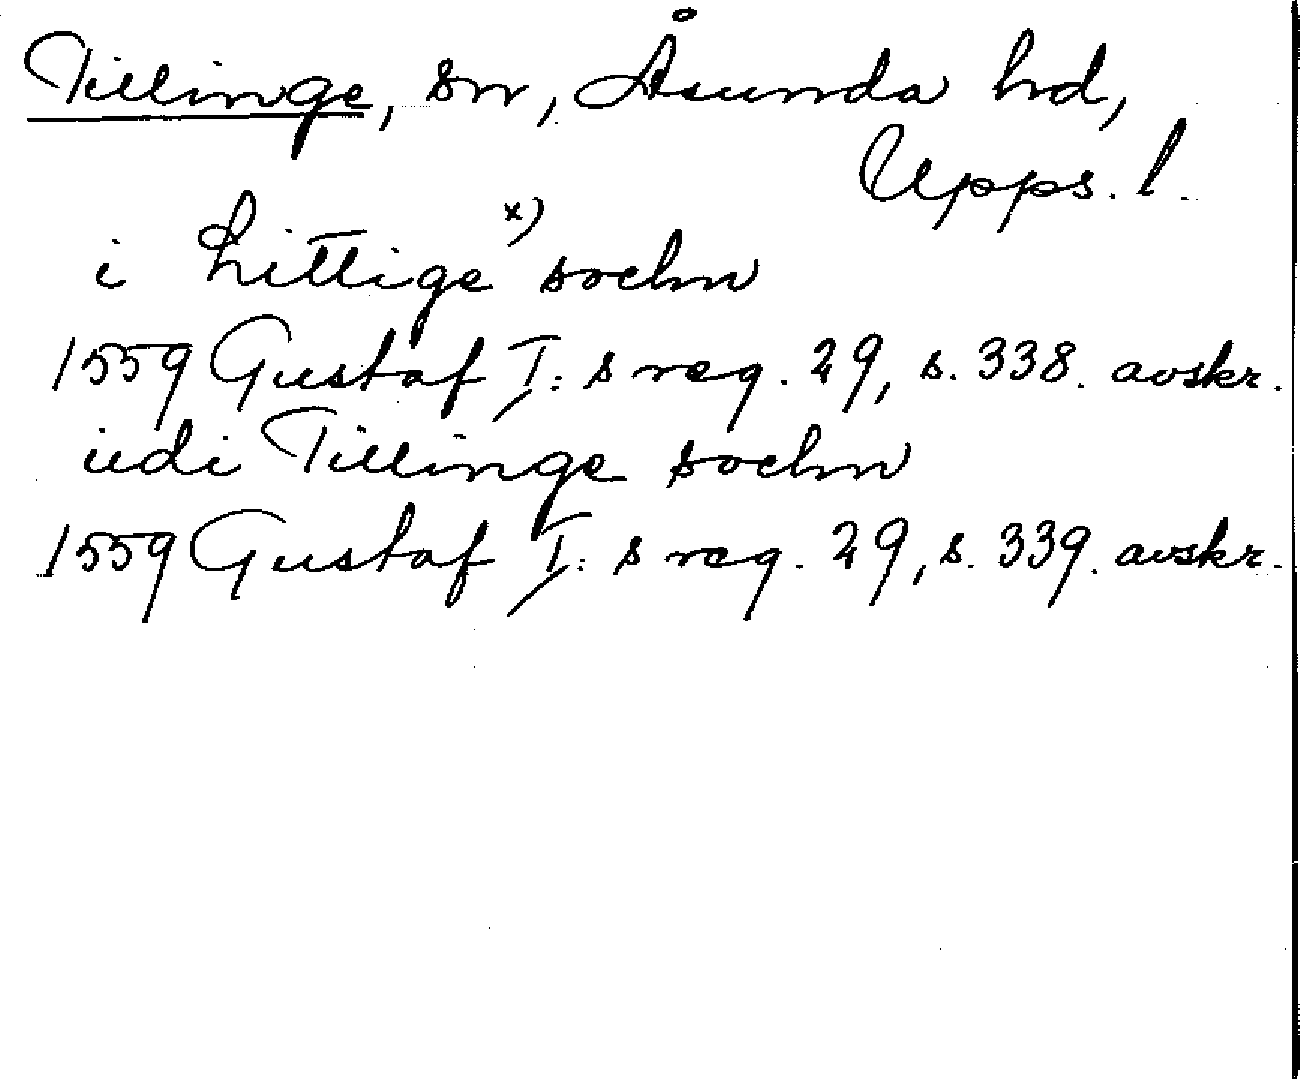 Tillinge, sn, Åsunda hd,
Upps. l.
i Littige x) sochn
1559 Gustaf I: s reg. 29, s. 338. avskr.
udi Tillinge sochn
1559 Gustaf I: s reg. 29, s. 339. avskr.